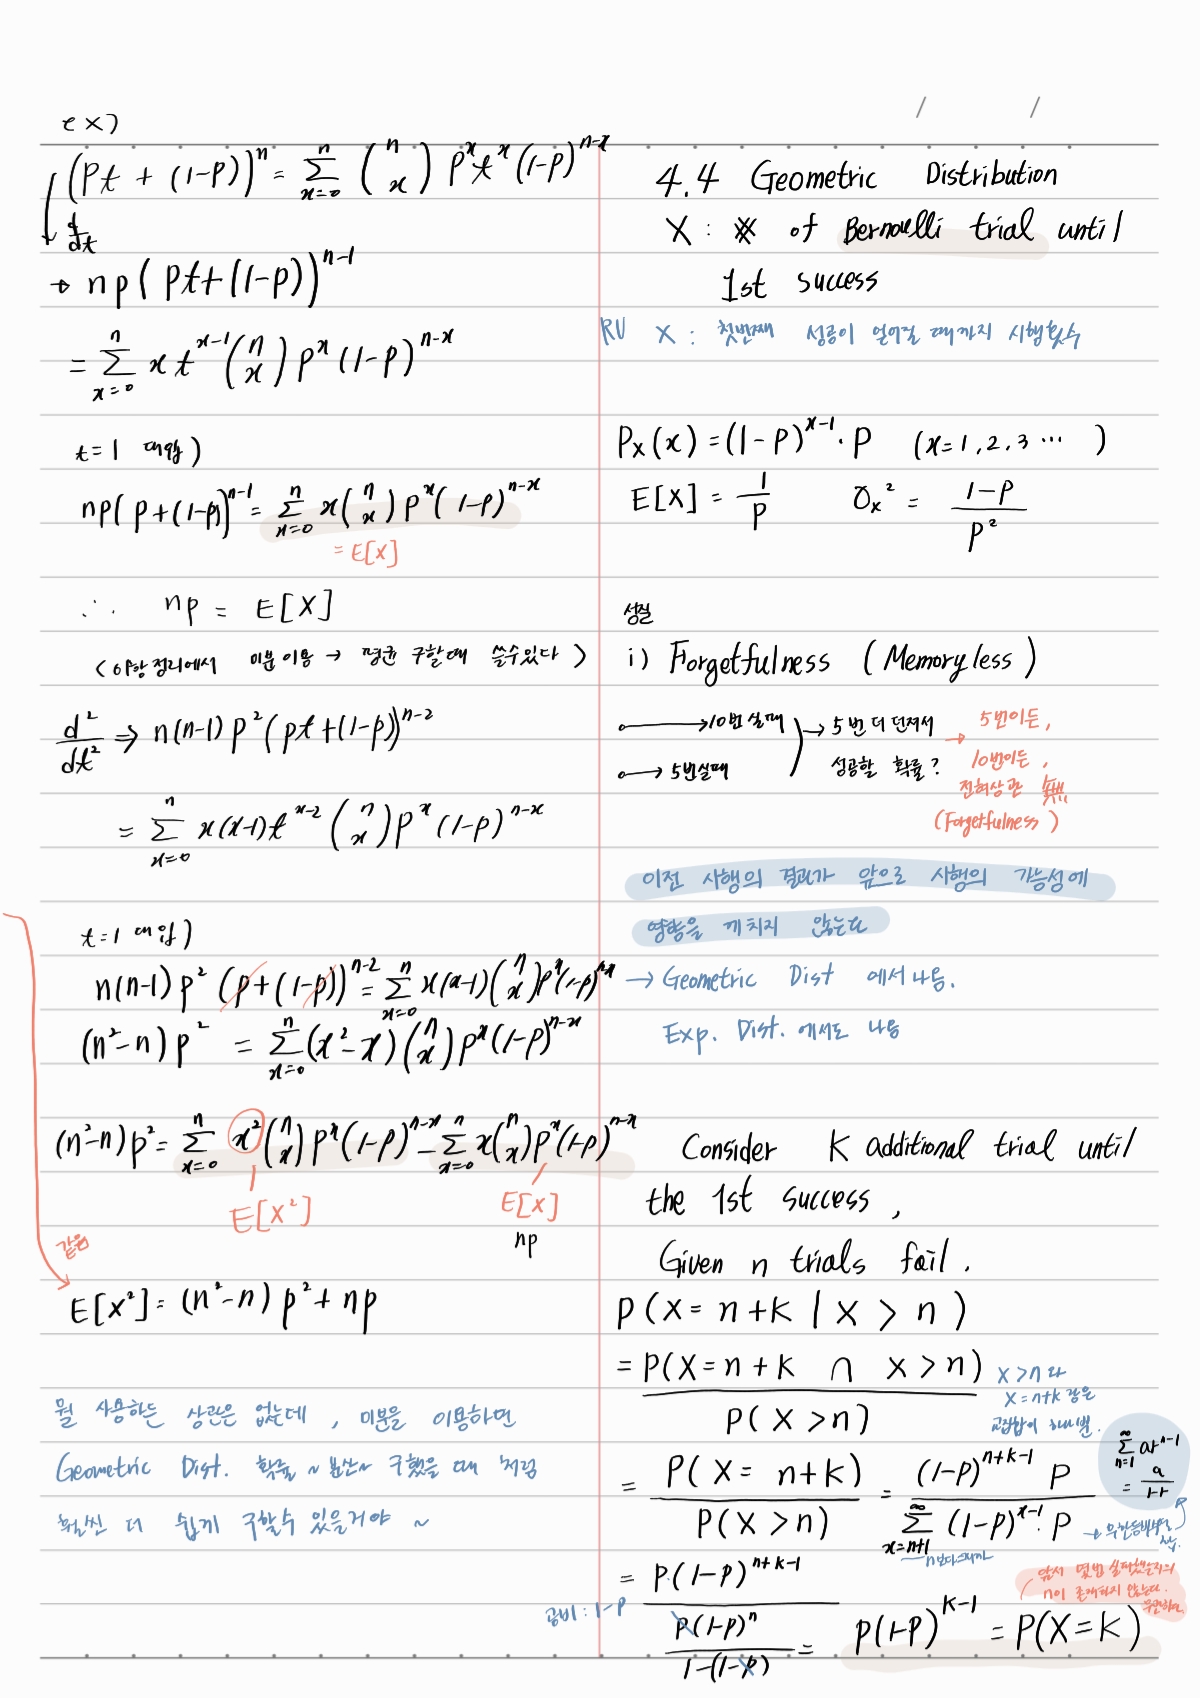 ex)
(pt + (1-p))^n = Σ_{x=0}^{n} (n x) p^x t^x (1-p)^{n-x}
d/dt
→ np(pt+(1-p))^{n-1}
= Σ_{x=0}^{n} x t^{x-1} (n x) p^x (1-p)^{n-x}
t=1 대입)
np(p+(1-p))^{n-1} = Σ_{x=0}^{n} x (n x) p^x (1-p)^{n-x}
= E[X]
∴ np = E[X]
(이항정리에서 미분이용 → 평균 구할때 쓸수있다)
d²/dt² ⇒ n(n-1) p² (pt+(1-p))^{n-2}
= Σ_{x=0}^{n} x(x-1) t^{x-2} (n x) p^x (1-p)^{n-x}
t=1 대입)
n(n-1) p² (p+(1-p))^{n-2} = Σ_{x=0}^{n} x(x-1) (n x) p^x (1-p)^{n-x}
(n²-n) p² = Σ_{x=0}^{n} (x²-x) (n x) p^x (1-p)^{n-x}
(n²-n) p² = Σ_{x=0}^{n} x² (n x) p^x (1-p)^{n-x} - Σ_{x=0}^{n} x (n x) p^x (1-p)^{n-x}
E[X²] E[X]
np
같음
E[X²] = (n²-n) p² + np
뭘 사용하든 상관은 없는데, 미분을 이용하면
Geometric Dist. 확률~분산~ 구했을 때 처럼
훨씬 더 쉽게 구할수 있을거야 ~
/ /
4.4 Geometric Distribution
X : # of Bernoulli trial until
1st success
RV X : 첫번째 성공이 얻어질 때까지 시행횟수
P_X(x) = (1-p)^{x-1} · p (x=1, 2, 3 ⋯ )
E[X] = 1/p σ_x² = (1-p)/p²
성질
i) Forgetfulness (Memoryless)
→ 10번 실패 → 5번 더 던져서 → 5번이든,
→ 5번실패 성공할 확률? 10번이든,
전혀상관 無
(Forgetfulness)
이전 시행의 결과가 앞으로 시행의 가능성에
영향을 끼치지 않는다
→ Geometric Dist 에서 나옴.
Exp. Dist. 에서도 나옴
Consider K additional trial until
the 1st success,
Given n trials fail.
P(X = n+k | X > n)
= P(X = n+k ∩ X > n) / P(X > n)
X > n 과
X = n+k 같은
교집합이 하나뿐.
= P(X = n+k) / P(X > n) = (1-p)^{n+k-1} p / Σ_{x=n+1}^{∞} (1-p)^{x-1} · p
Σ_{n=1}^{∞} ar^{n-1}
= a/(1-r)
n보다 크니까
→ 무한등비수열
= p·(1-p)^{n+k-1} / (p(1-p)^n / (1-(1-p))) = p(1-p)^{k-1} = P(X=k)
공비 : 1-p
앞서 몇번 실패했는지의
n이 존재하지 않는다.